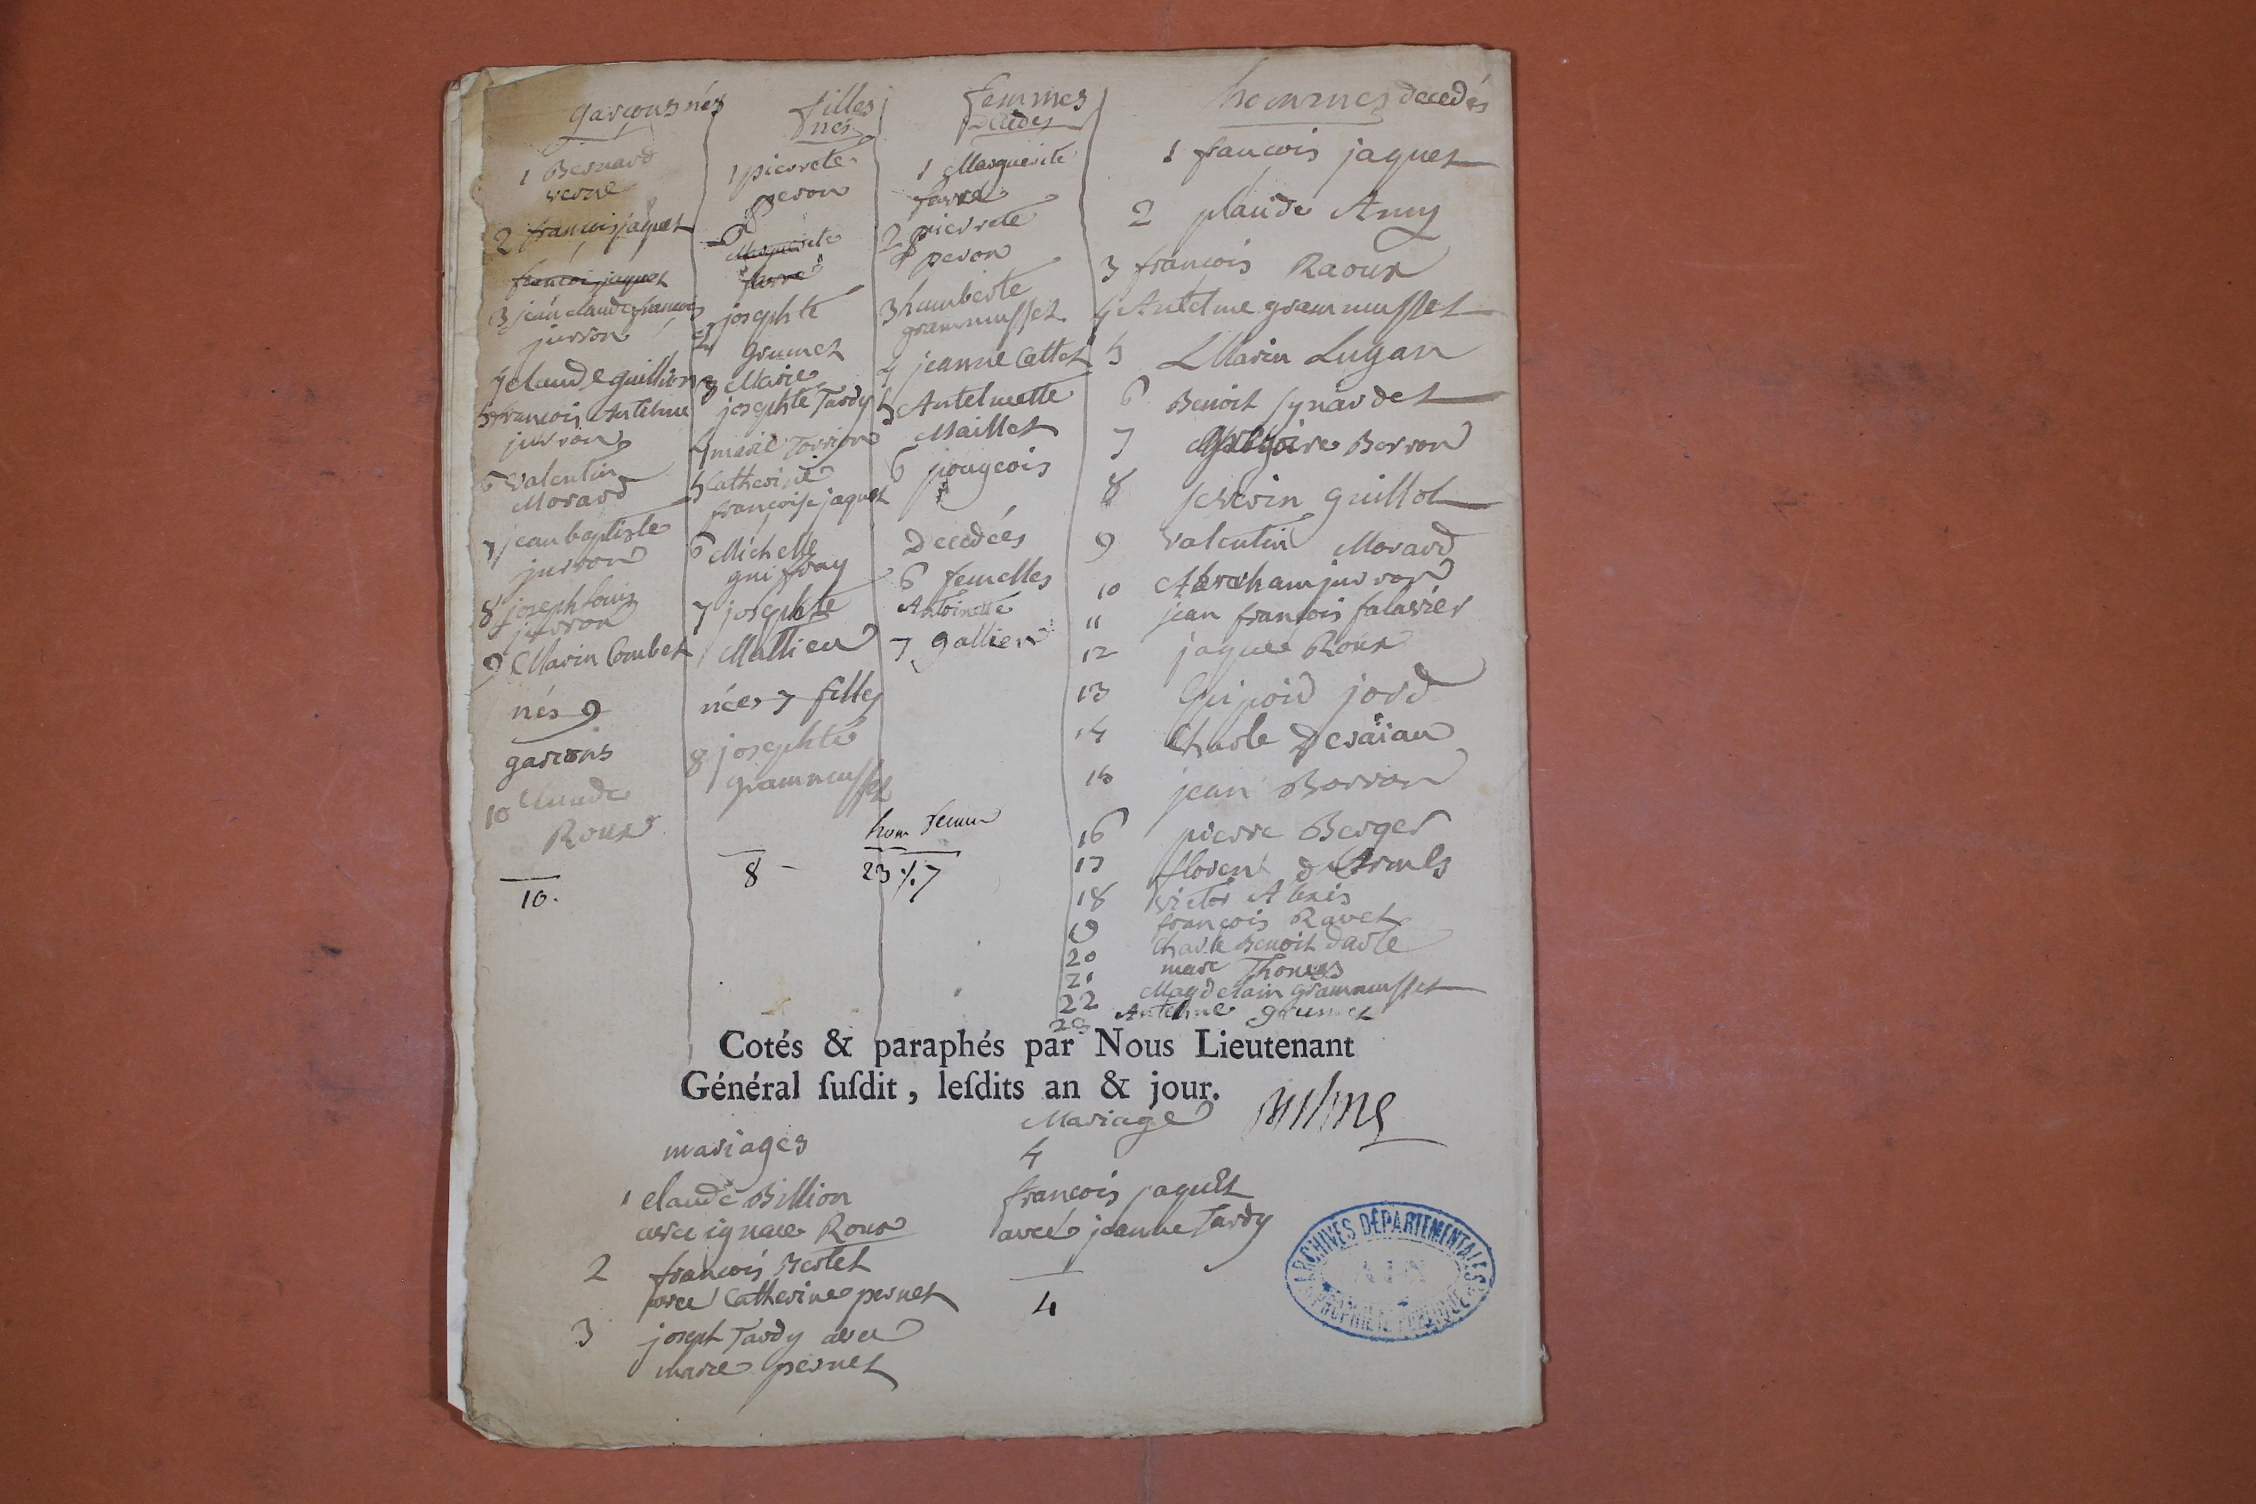 garçons nés
1 Bernard
verne
2 francois jaquet
francois jaquet
3 jean claude francois
jurron
4 claude guillion
5 francois Antelme
jurron
6 valentin
Morard
7 jean baptiste
jurron
8 joseph louis
jurron
9 Marin Combet
nés 9
garcons
10 Claude
Roux
10.
filles
nés
1 pierrete
peron
Marguerite
farre
2 josephte
grumet
3 Marie
josephte Tardy
4 marie Torrion
5 Catherine
françoise jaquet
6 Michelle
guiffray
7 josephte
Mathieu
nées 7 filles
8 josephte
grammusset
8
femmes
décédés
1 Marguerite
farre
2 pierrete
peron
3 humberte
grammusset
4 jeanne Cattet
5 Antelmette
Maillet
6 pougeois
Decedées
6 femelles
Antoinette
7 gallien
hom femm
23 7
hommes decedés
1 francois jaquet
2 plaude Amy
3 françois Raoux
4 Antelme grammusset
5 Marin Lugan
6 Benoit synardet
7 gregoire Borron
8 severin guillot
9 valentin Morard
10 Abraham jurron
11 jean françois falavier
12 jaque Roux
13 jord
14 Charle
15 jean Borron
16 pierre Berger
17 florent
18 victor Alexis
19 françois Ravet
20 Charle Benoit darte
21 marc Thomas
22 Magdelain grammusset
23 Antelme grumet
Cotés & paraphés par Nous Lieutenant
Général ſuſdit, leſdits an & jour.
mariages
1 claude Billion
avec ignace Roux
2 francois Bertet
avec Catherine pernet
3 joseph Tardy avec
marie pernet
Mariage
4
francois jaquet
avec jeanne Tardy
4
ARCHIVES DÉPARTEMENTALES
AIN
PROPRIÉTÉ PUBLIQUE